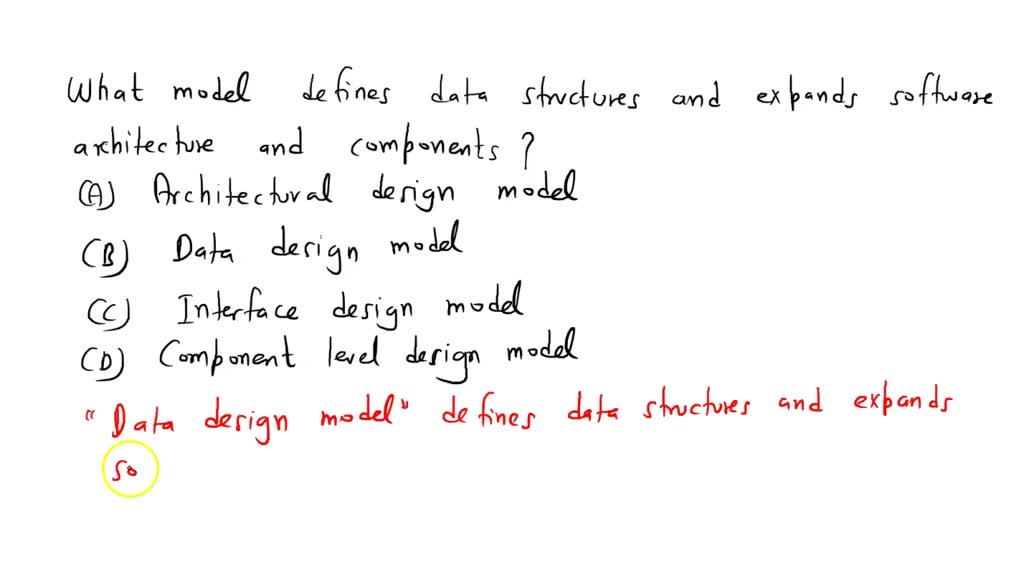 What model defines data structures and expands software
architecture and components ?
(A) Architectural design model
(B) Data design model
(C) Interface design model
(D) Component level design model
"Data design model" defines data structures and expands
so